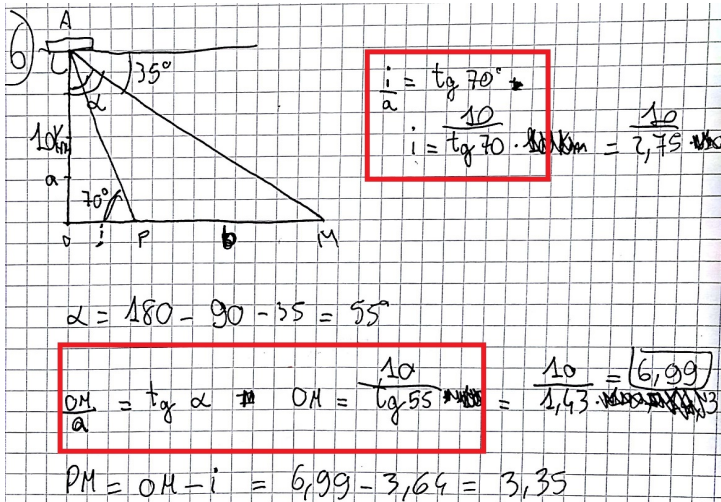 6)
A
35°
α
10Km
a
70°
O i P b M
i/a = tg 70°
i = 10/tg 70 = 10/2,75
α = 180 - 90 - 35 = 55°
OM/a = tg α OM = 10/tg 55 = 10/1,43 = 6,99
PM = OM - i = 6,99 - 3,64 = 3,35